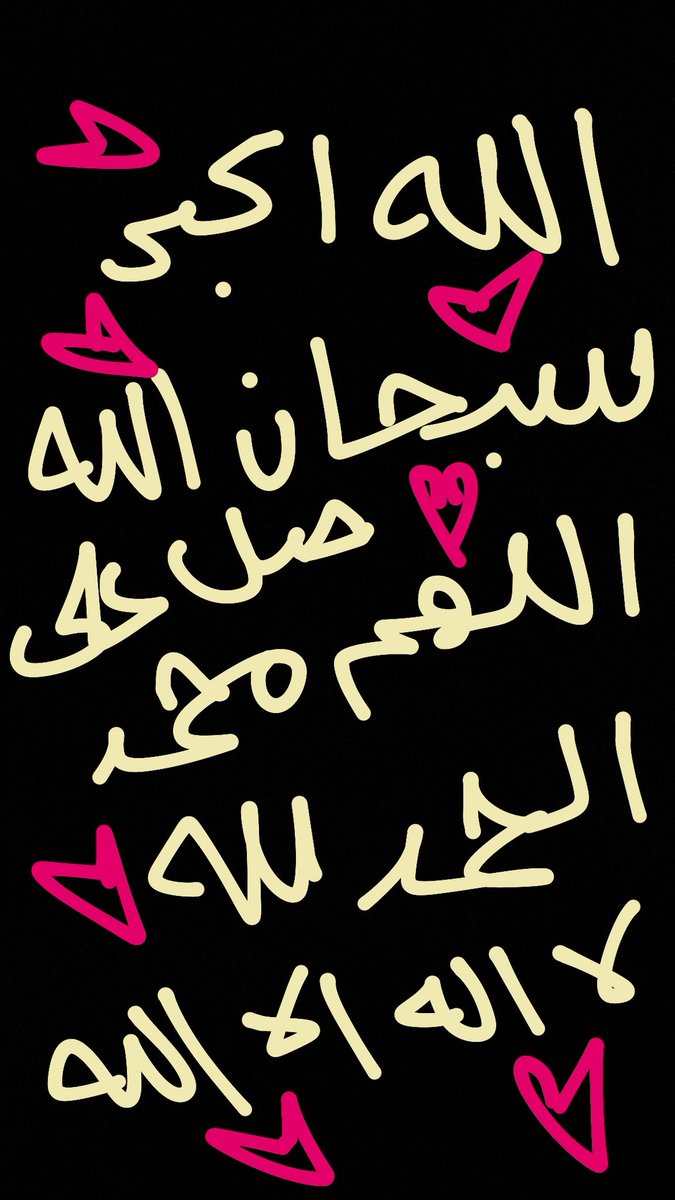 الله اكبر
سبحان الله
اللهم صل على
محمد
الحمد لله
لا اله الا الله